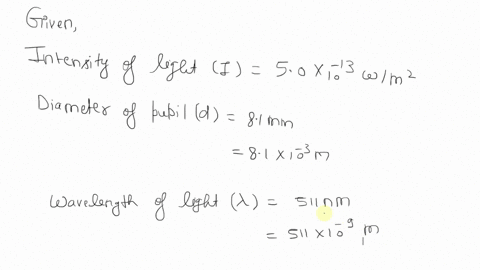 Given,
Intensity of light (I) = 5.0 × 10⁻¹³ w/m²
Diameter of pupil (d) = 8.1 mm
= 8.1 × 10⁻³ m
Wavelength of light (λ) = 511 nm
= 511 × 10⁻⁹ m